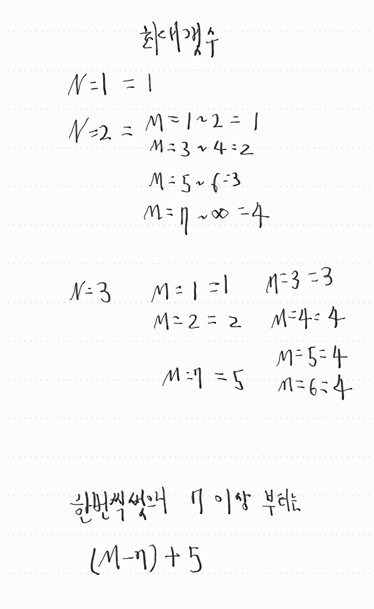 최대갯수
N=1 = 1
N=2 = M=1~2 = 1
M=3~4=2
M=5~6=3
M=7~∞=4
N=3 M=1=1 M=3=3
M=2=2 M=4=4
M=5=4
M=7=5 M=6=4
한번씩썼을때 7 이상 부터는
(M-7)+5